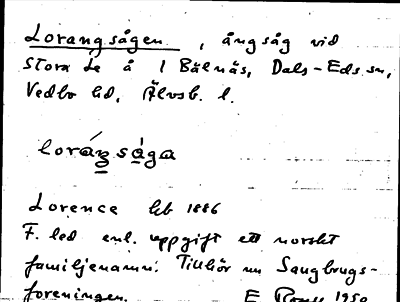 Lorangsågen, ångsåg vid
Stora Le å i Bälnäs, Dals-Eds sn,
Vedbo hd, Älvsb. l.
loráŋsåga
Lorence hb 1886
F. led enl. uppgift ett norskt
familjenamn. Tillhör nu Saugbrugs-
foreningen. E 1950